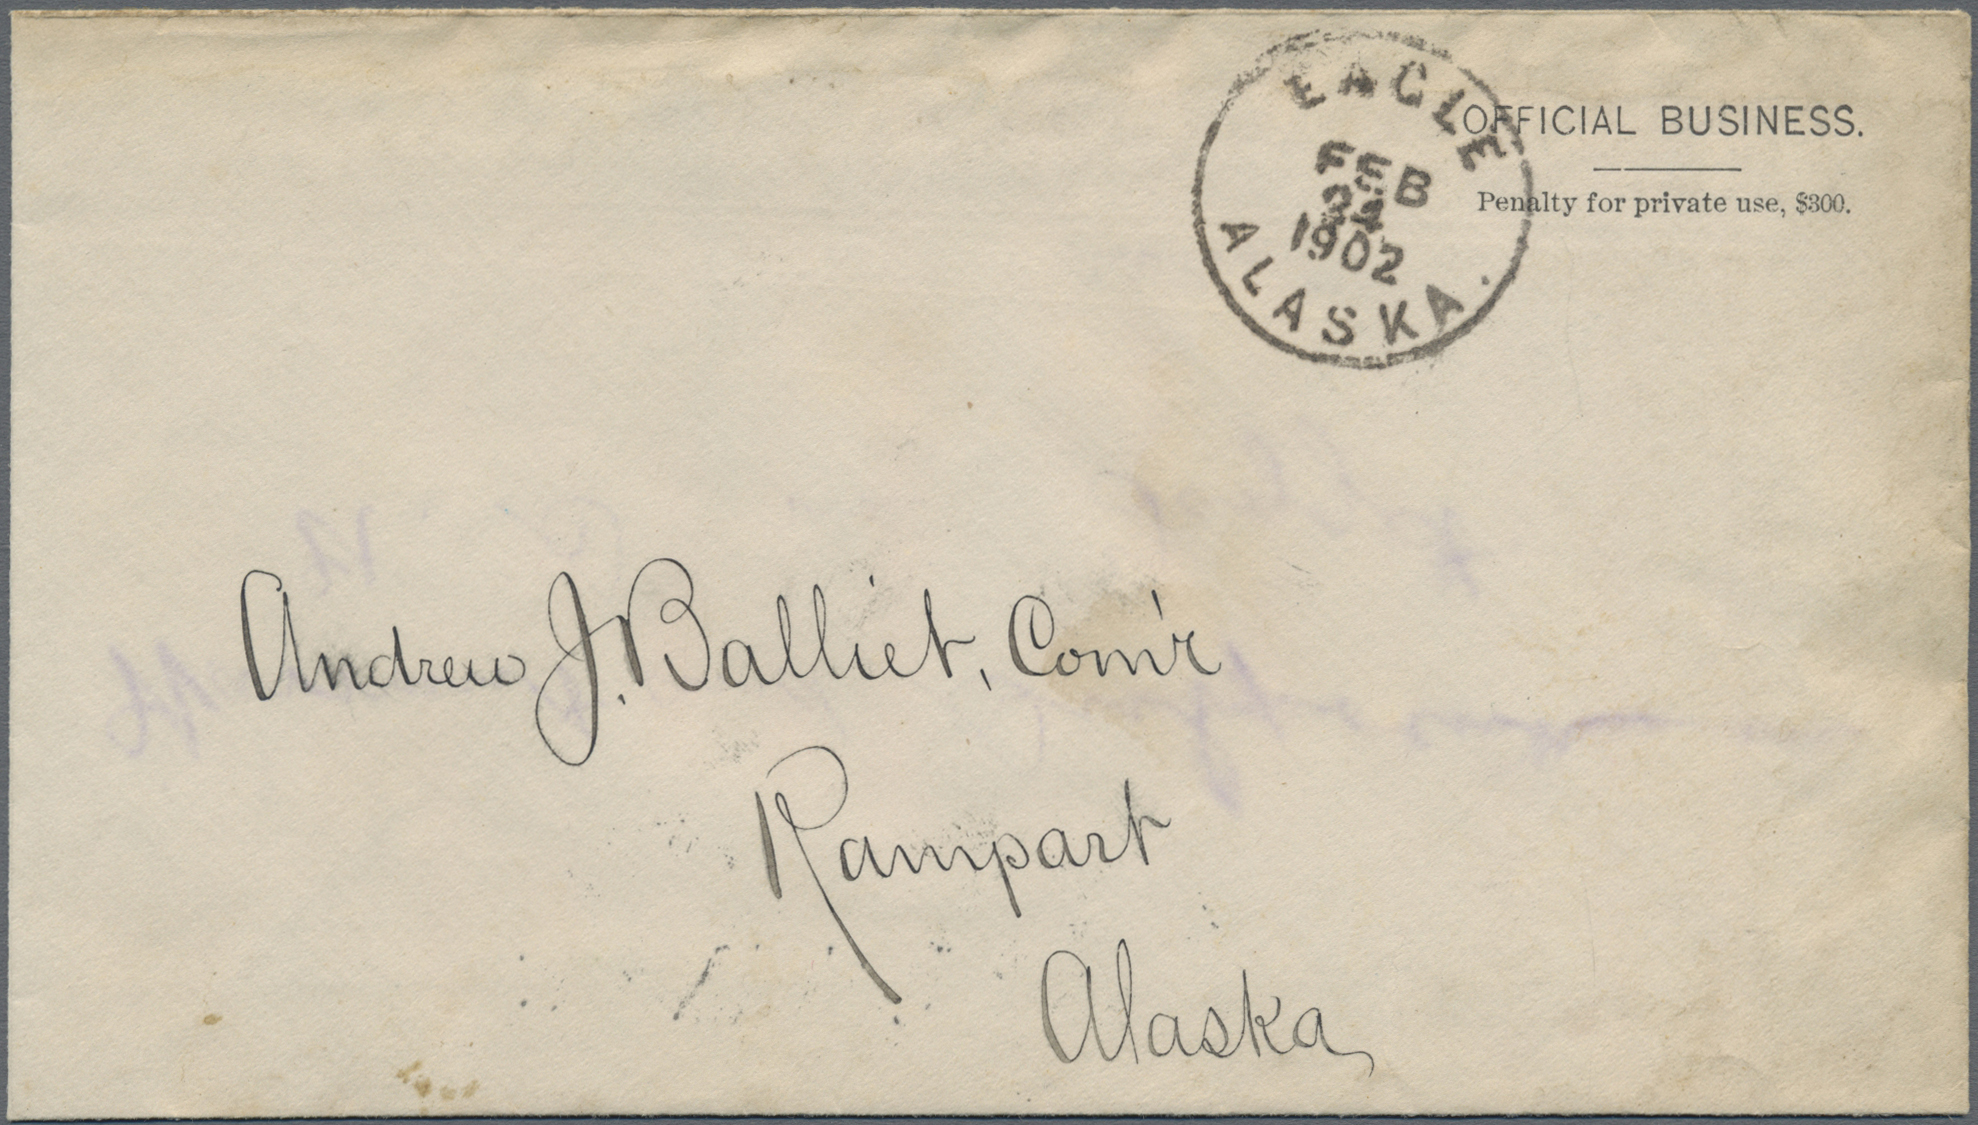 EAGLE
FEB
1902
ALASKA.
OFFICIAL BUSINESS.
Penalty for private use, $300.
Andrew J. Balliet, Com'r
Rampart
Alaska